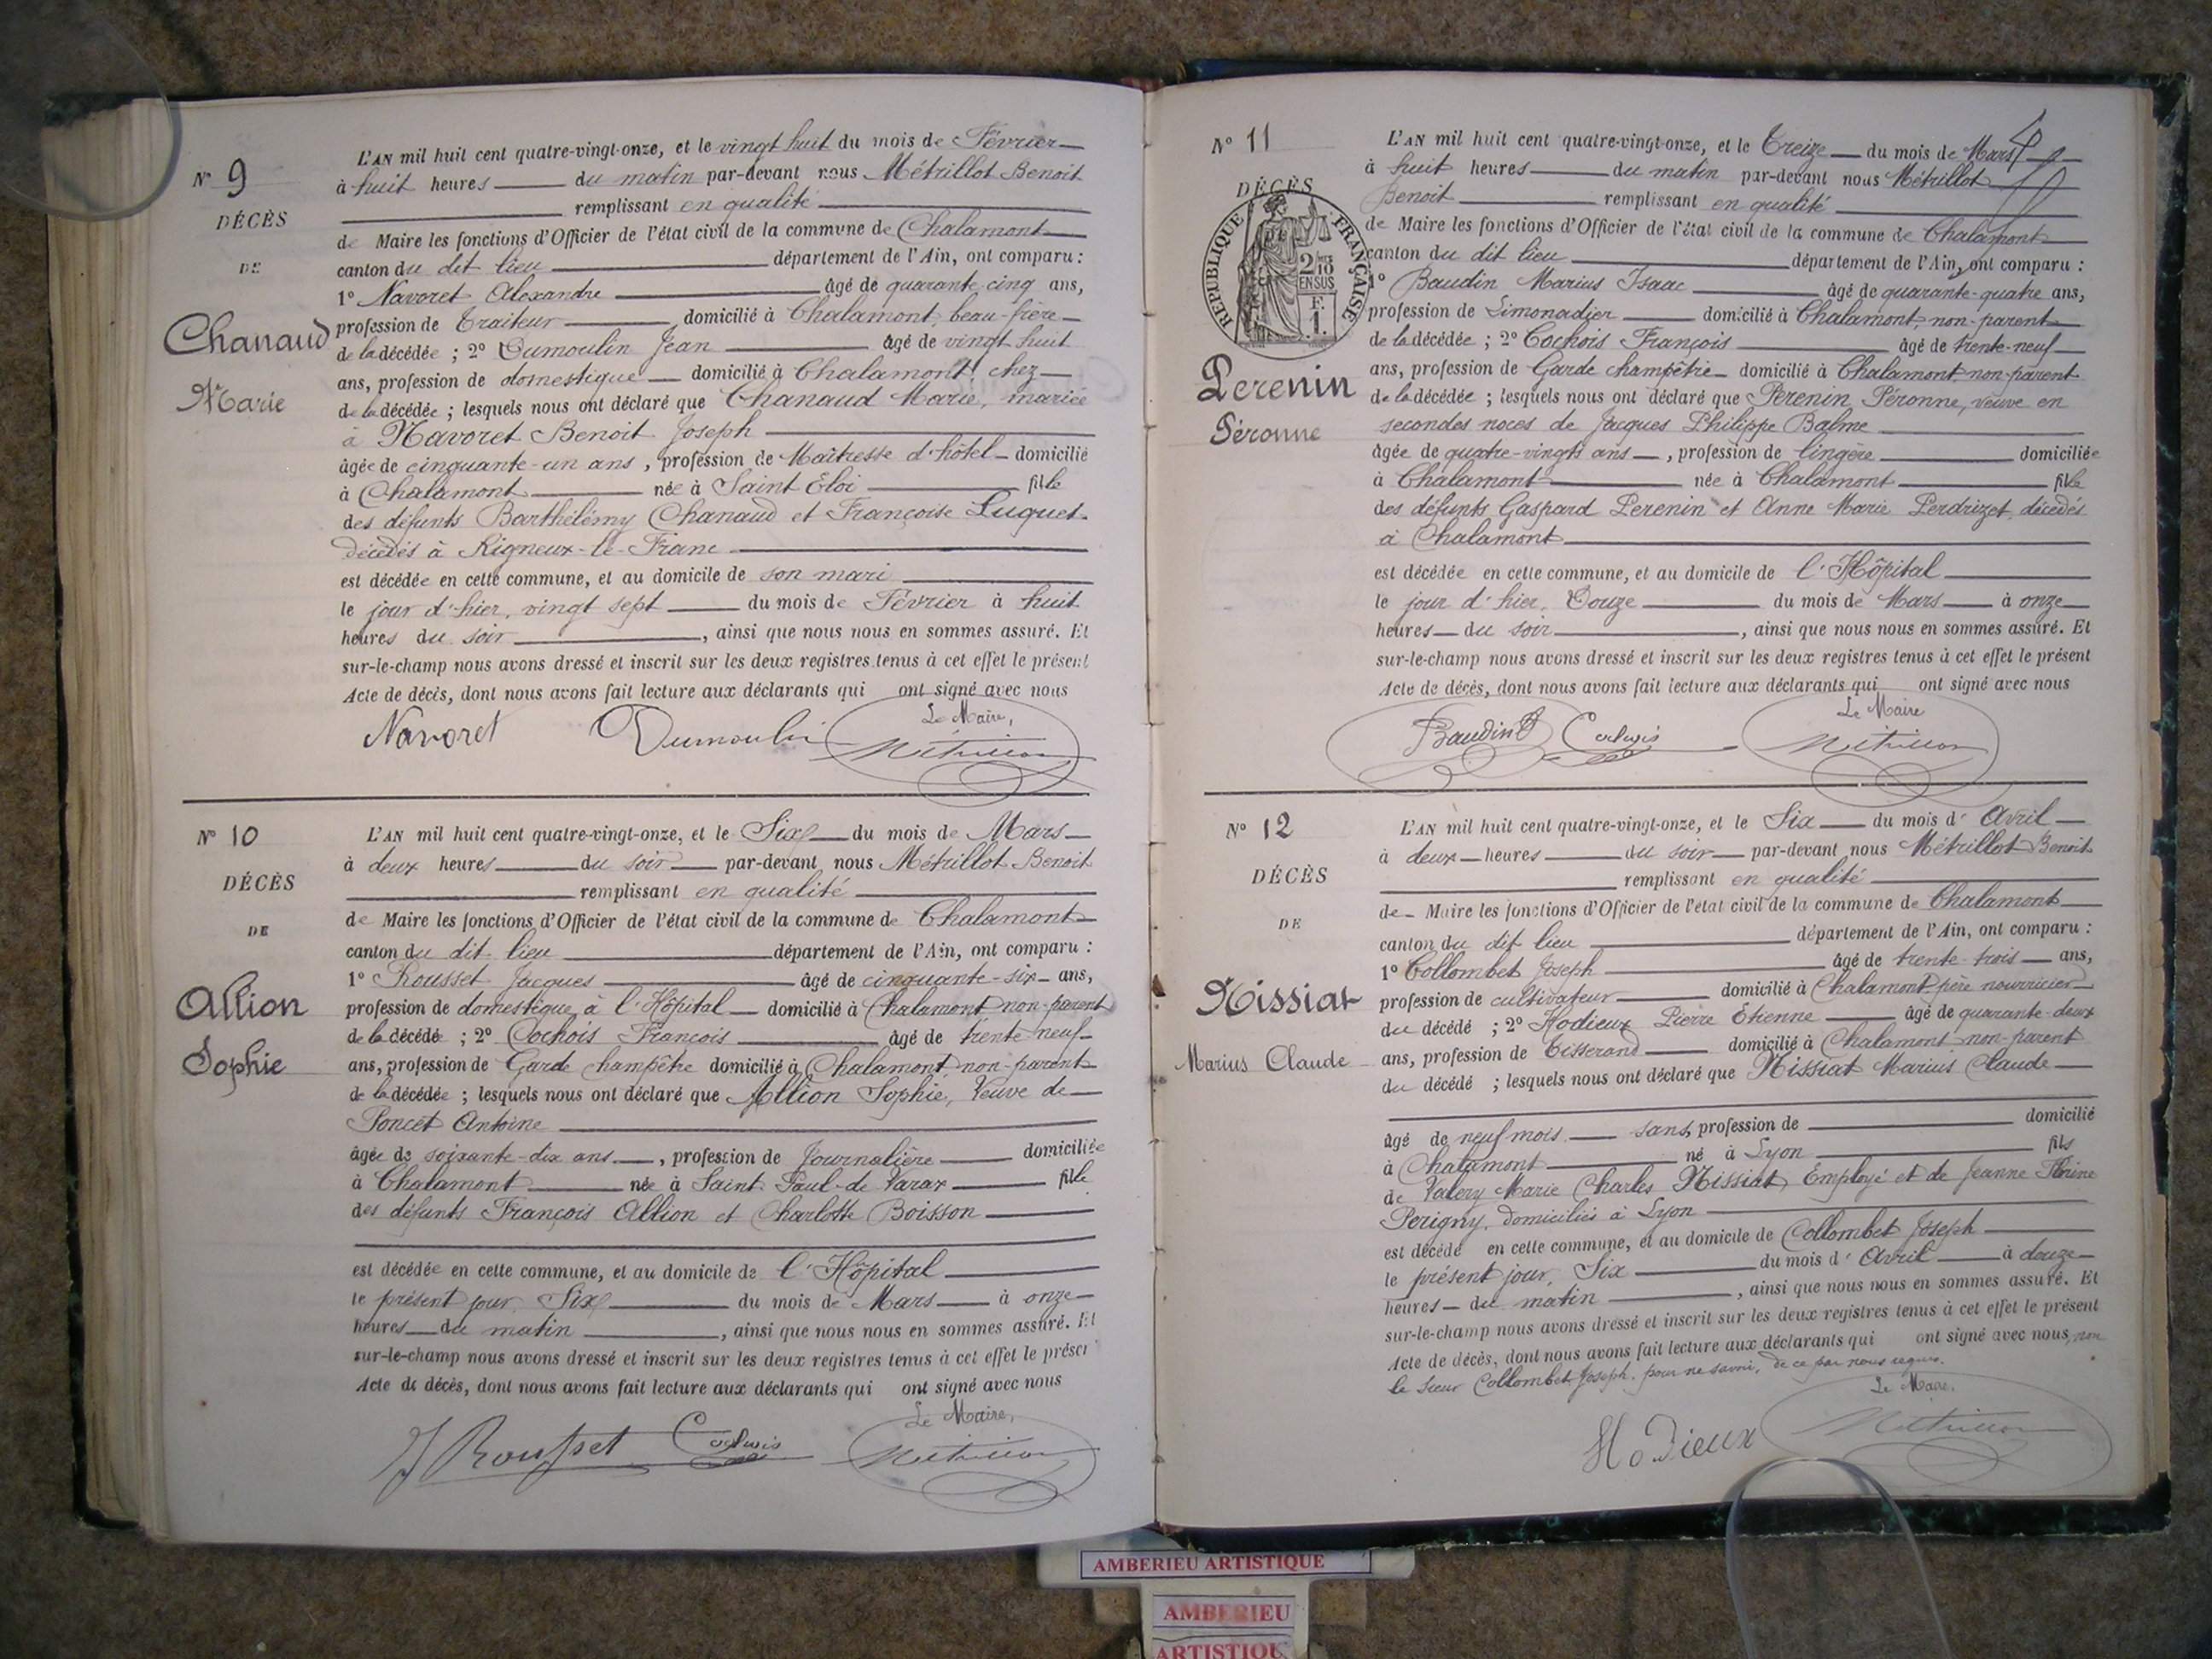 N° 9
DÉCÈS
DE
Chanaud
Marie
L'AN mil huit cent quatre-vingt-onze, et le vingt huit du mois de Février
à huit heures du matin par-devant nous Métrillot Benoit
remplissant en qualité
de Maire les fonctions d'Officier de l'état civil de la commune de Chalamont
canton du dit lieu département de l'Ain, ont comparu :
1° Navoret Alexandre âgé de quarante cinq ans,
profession de Traiteur domicilié à Chalamont, beau-frère
de la décédée ; 2° Dumoulin Jean âgé de vingt huit
ans, profession de domestique domicilié à Chalamont, chez
de la décédée ; lesquels nous ont déclaré que Chanaud Marie, mariée
à Navoret Benoit Joseph
âgée de cinquante-un ans, profession de Maîtresse d'hôtel domicilié
à Chalamont née à Saint Eloi fille
des défunts Barthélémy Chanaud et Françoise Luquet
décédés à Rigneux-le-Franc
est décédée en cette commune, et au domicile de son mari
le jour d'hier, vingt sept du mois de Février à huit
heures du soir, ainsi que nous nous en sommes assuré. Et
sur-le-champ nous avons dressé et inscrit sur les deux registres tenus à cet effet le présent
Acte de décès, dont nous avons fait lecture aux déclarants qui ont signé avec nous
Le Maire,
Navoret Dumoulin Métrillot
N° 10
DÉCÈS
DE
Allion
Sophie
L'AN mil huit cent quatre-vingt-onze, et le Six du mois de Mars
à deux heures du soir par-devant nous Métrillot Benoit
remplissant en qualité
de Maire les fonctions d'Officier de l'état civil de la commune de Chalamont
canton du dit lieu département de l'Ain, ont comparu :
1° Rousset Jacques âgé de cinquante-six ans,
profession de domestique à l'Hôpital domicilié à Chalamont non-parent
de la décédé ; 2° Cochois François âgé de trente neuf
ans, profession de Garde champêtre domicilié à Chalamont non-parent
de la décédée ; lesquels nous ont déclaré que Allion Sophie, Veuve de
Poncet Antoine
âgée de soixante-dix ans, profession de Journalière domiciliée
à Chalamont née à Saint-Paul-de Varax fille
des défunts François Allion et Charlotte Boisson
est décédée en cette commune, et au domicile de l'Hôpital
le présent jour, Six du mois de Mars à onze
heures du matin, ainsi que nous nous en sommes assuré. Et
sur-le-champ nous avons dressé et inscrit sur les deux registres tenus à cet effet le présent
Acte de décès, dont nous avons fait lecture aux déclarants qui ont signé avec nous
Le Maire,
J Rousset Cochois Métrillot
N° 11
DÉCÈS
RÉPUBLIQUE FRANÇAISE
2/10
EN SUS
F.
1.
Perenin
Péronne
L'AN mil huit cent quatre-vingt-onze, et le Treize du mois de Mars
à huit heures du matin par-devant nous Métrillot
Benoit remplissant en qualité
de Maire les fonctions d'Officier de l'état civil de la commune de Chalamont
canton du dit lieu département de l'Ain, ont comparu :
1° Baudin Marius Isaac âgé de quarante-quatre ans,
profession de Limonadier domicilié à Chalamont, non-parent
de la décédée ; 2° Cochois François âgé de trente-neuf
ans, profession de Garde champêtre domicilié à Chalamont non-parent
de la décédée ; lesquels nous ont déclaré que Perenin Péronne, veuve en
secondes noces de Jacques Philippe Balme
âgée de quatre-vingts ans, profession de lingère domiciliée
à Chalamont née à Chalamont fille
des défunts Gaspard Perenin et Anne Marie Perdrizet, décédés
à Chalamont
est décédée en cette commune, et au domicile de l'Hôpital
le jour d'hier, Douze du mois de Mars à onze
heures du soir, ainsi que nous nous en sommes assuré. Et
sur-le-champ nous avons dressé et inscrit sur les deux registres tenus à cet effet le présent
Acte de décès, dont nous avons fait lecture aux déclarants qui ont signé avec nous
Le Maire
Baudin Cochois Métrillot
N° 12
DÉCÈS
DE
Missiat
Marius Claude
L'AN mil huit cent quatre-vingt-onze, et le Six du mois d'Avril
à deux heures du soir par-devant nous Métrillot Benoit
remplissant en qualité
de Maire les fonctions d'Officier de l'état civil de la commune de Chalamont
canton du dit lieu département de l'Ain, ont comparu :
1° Collombet Joseph âgé de trente-trois ans,
profession de cultivateur domicilié à Chalamont, père nourricier
du décédé ; 2° Hodieux Pierre Etienne âgé de quarante-deux
ans, profession de Tisserand domicilié à Chalamont non-parent
du décédé ; lesquels nous ont déclaré que Missiat Marius Claude
âgé de neuf mois sans profession de domicilié
à Chalamont né à Lyon fils
de Valery Marie Charles Missiat, Employé et de Jeanne Florine
Perigny, domiciliés à Lyon
est décédé en cette commune, et au domicile de Collombet Joseph
le présent jour, Six du mois d'Avril à douze
heures du matin, ainsi que nous nous en sommes assuré. Et
sur-le-champ nous avons dressé et inscrit sur les deux registres tenus à cet effet le présent
Acte de décès, dont nous avons fait lecture aux déclarants qui ont signé avec nous, non
le sieur Collombet Joseph, pour ne savoir, de ce par nous requis.
Le Maire,
Hodieux Métrillot
AMBERIEU ARTISTIQUE
AMBERIEU
ARTISTIQUE